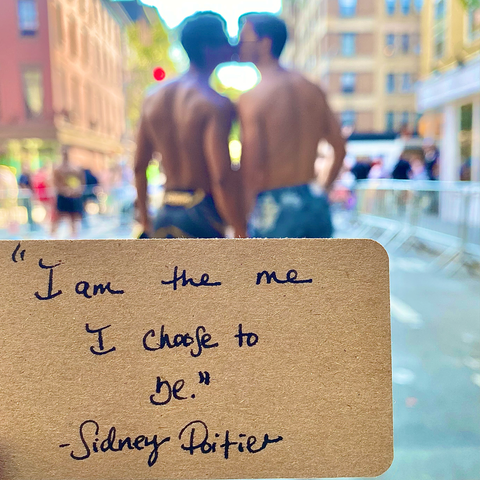 "I am the me
I choose to
be."
-Sidney Poitier